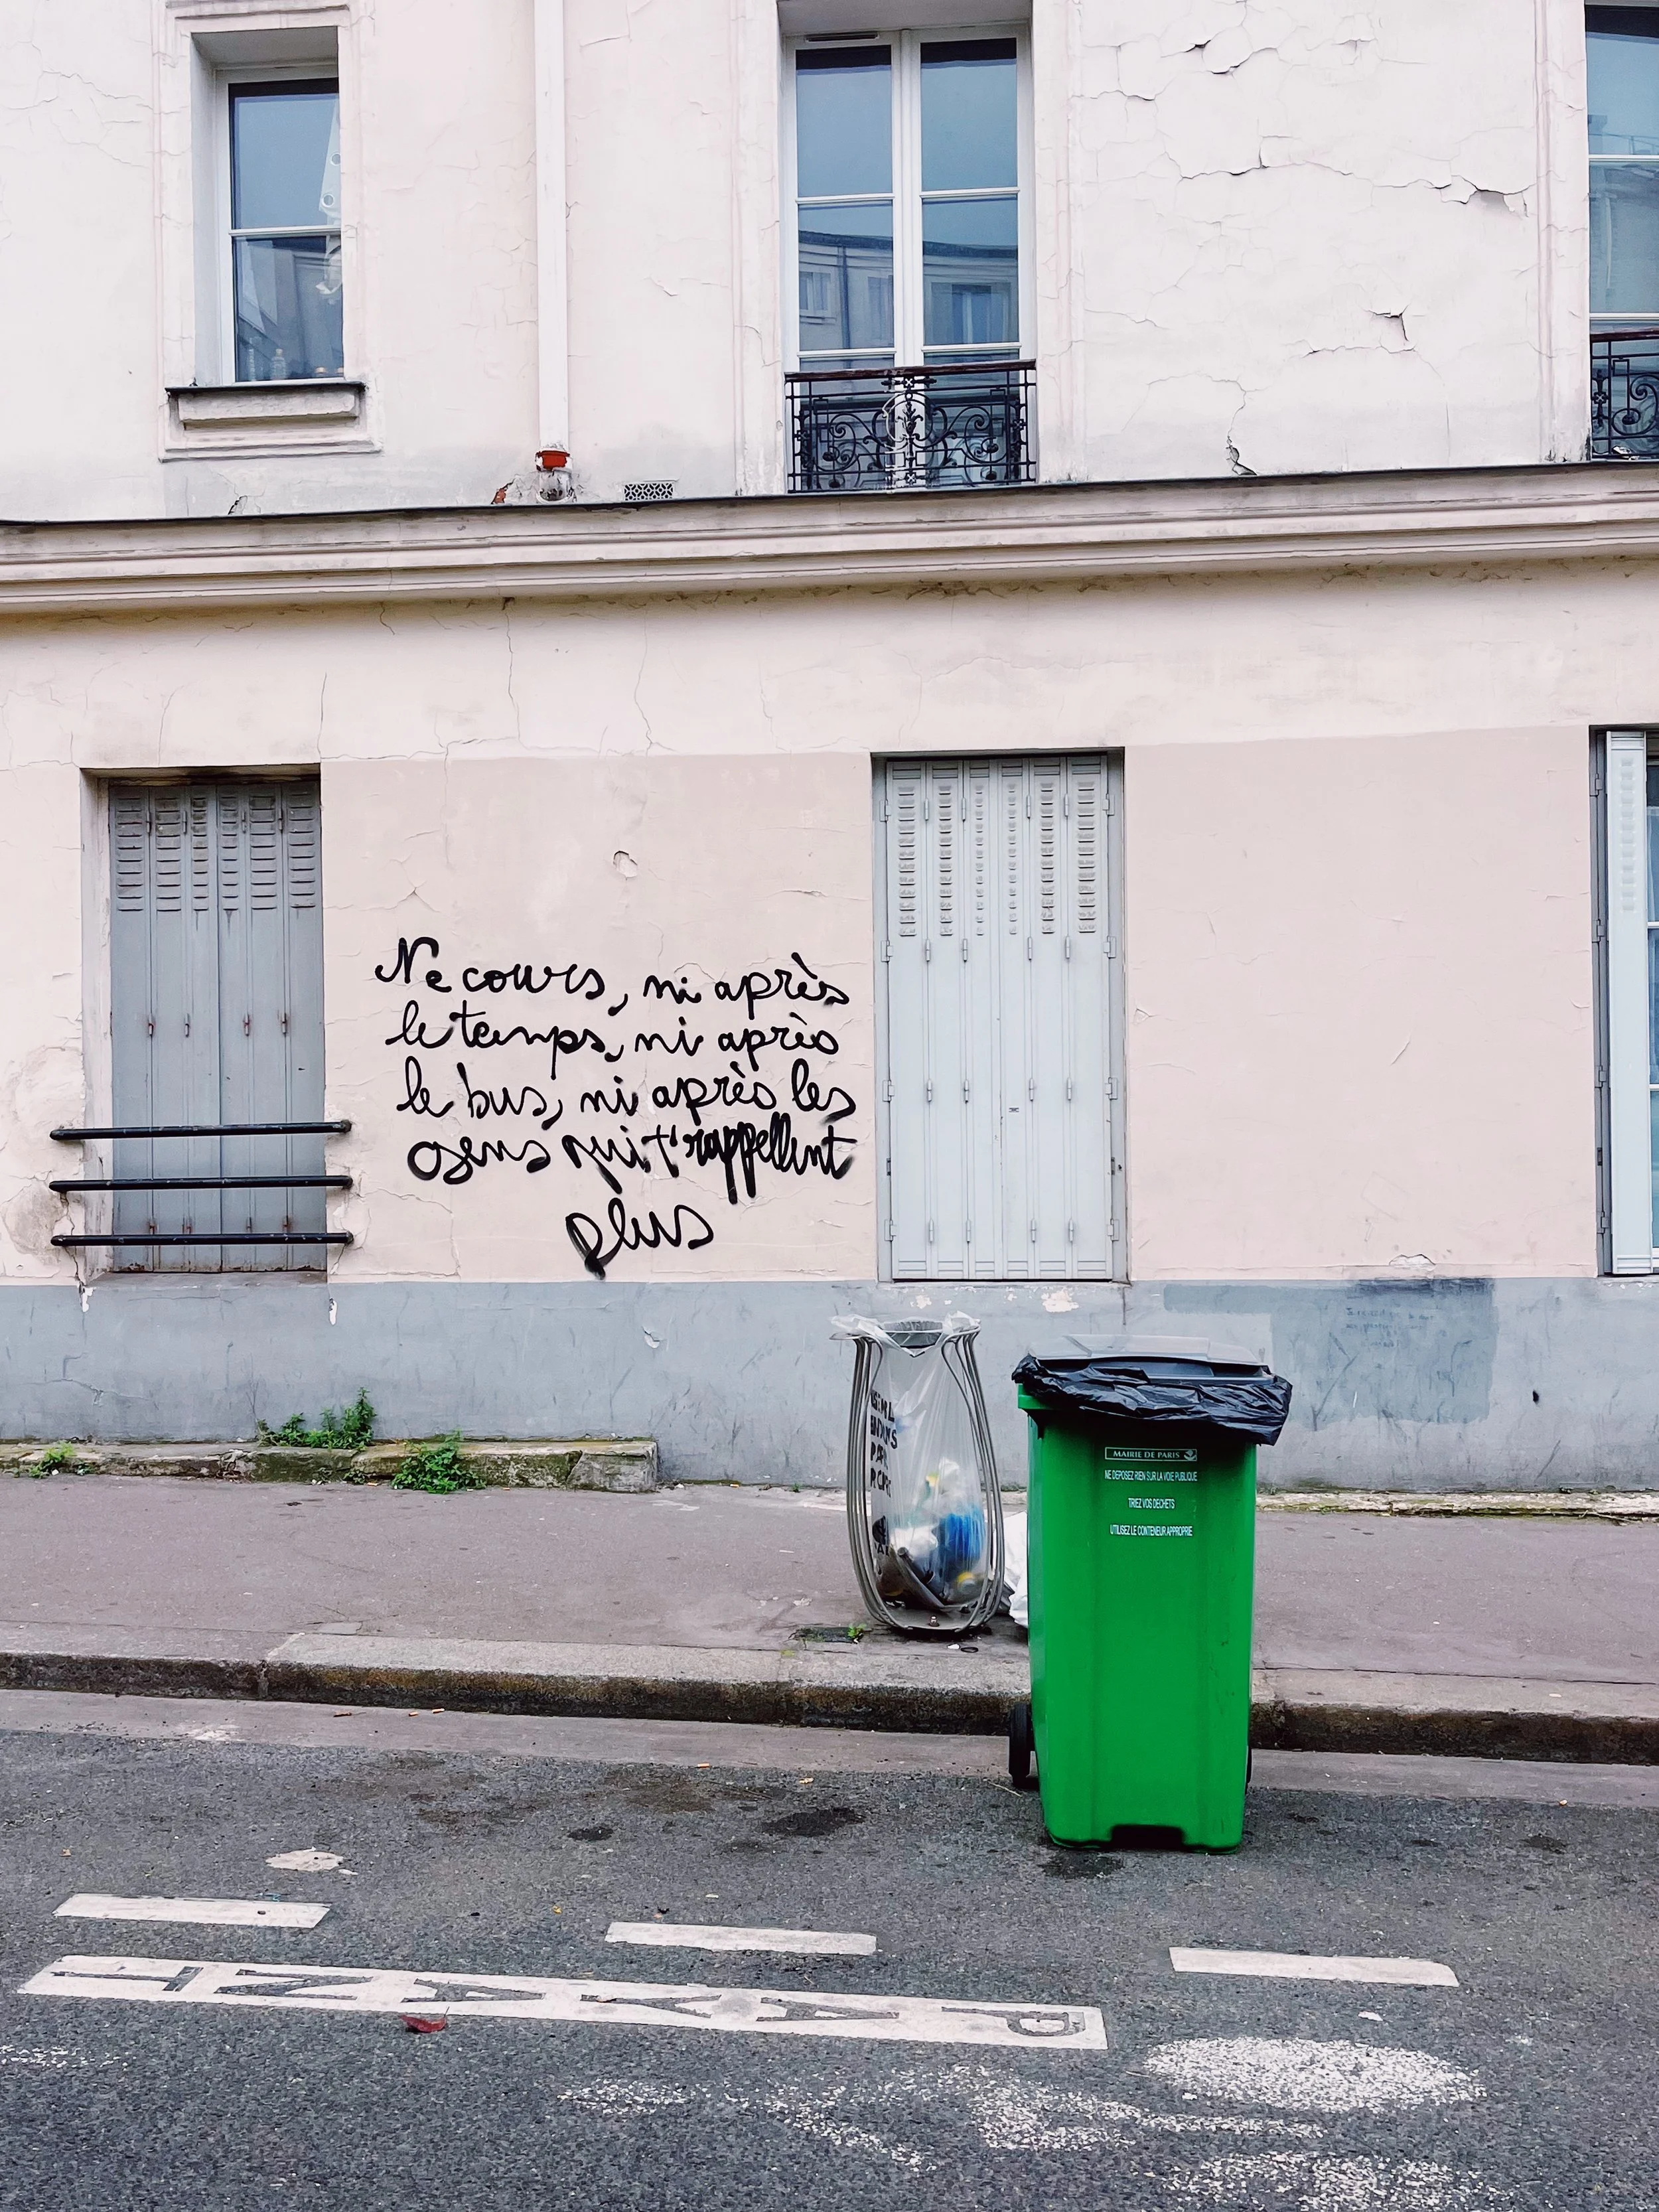 Ne cours, ni après
le temps, ni après
le bus, ni après les
gens qui t'rappellent
plus
MAIRIE DE PARIS
NE DEPOSEZ RIEN SUR LA VOIE PUBLIQUE
TRIEZ VOS DECHETS
UTILISEZ LE CONTENEUR APPROPRIE
PAYANT